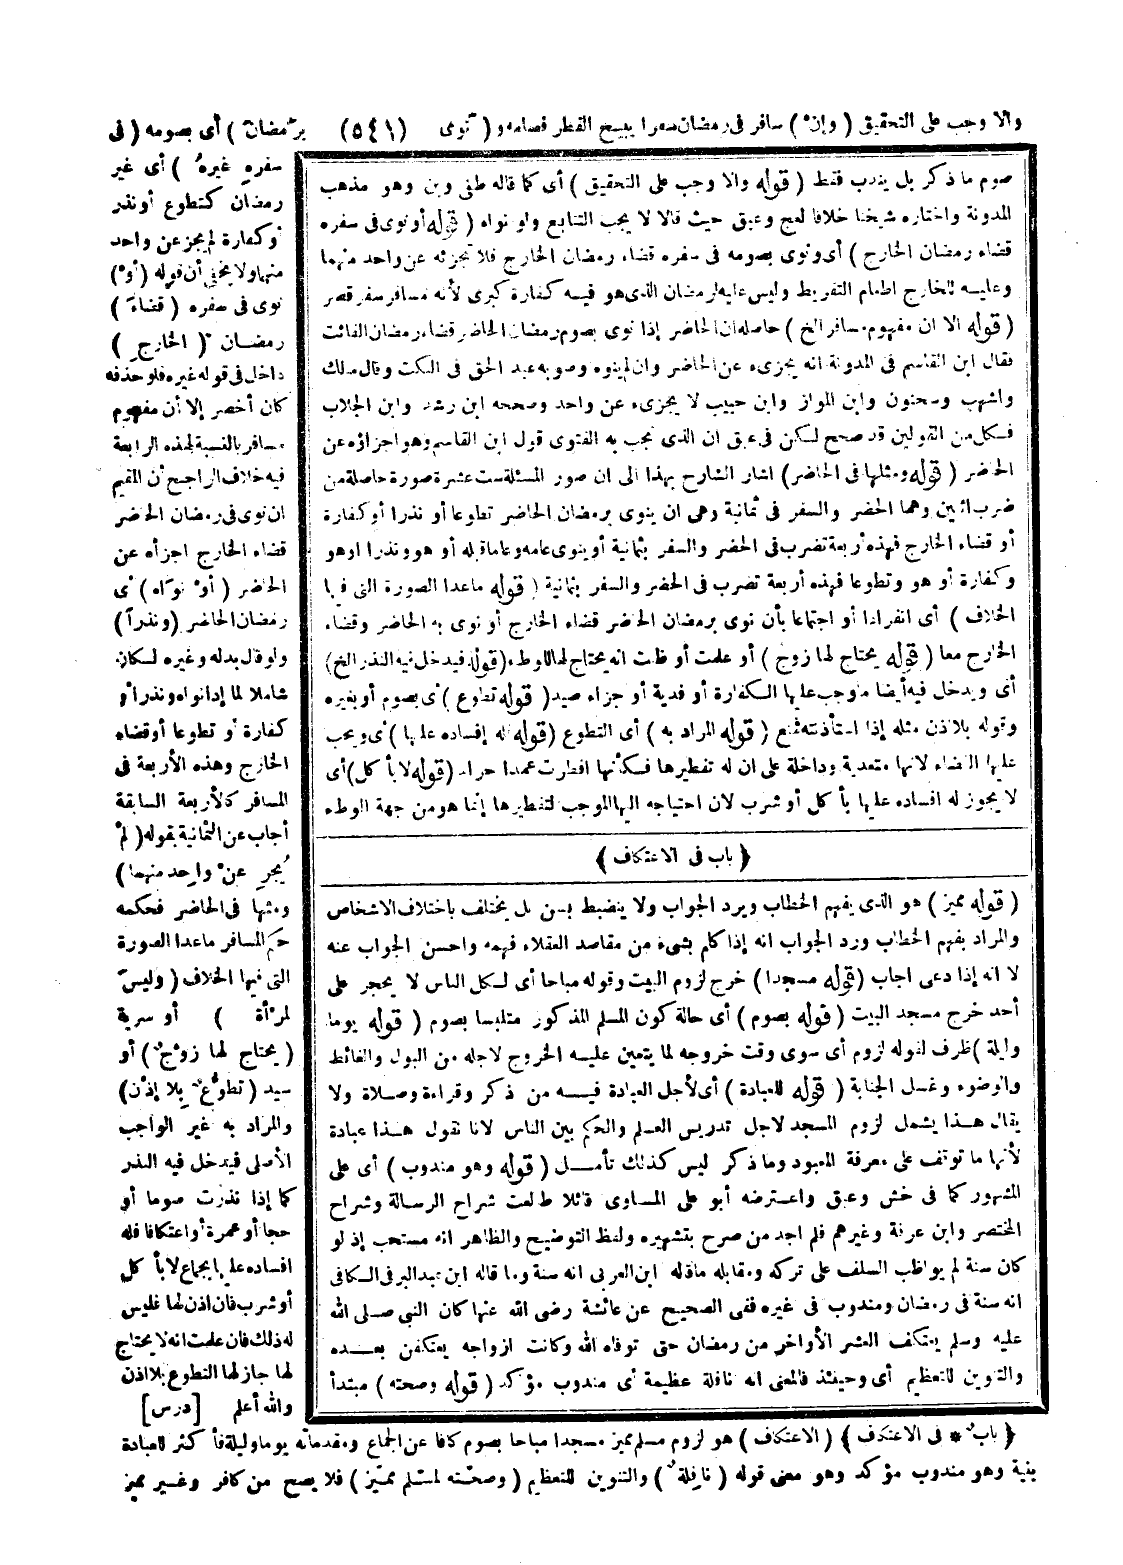 والا وجب على التحقيق ( وإن ) سافر فى رمضان سفرا يبيح الفطر فصامه و ( نوى (٥٤١) برمضان ) أى بصومه ( فى
سفره غيره ) أى غير
رمضان كتطوع أو نذر
أو كفارة لم يجز عن واحد
منهما ولا يخفى أن قوله (أو)
نوى فى سفره ( قضاء )
رمضان ( الخارج )
داخل فى قوله غيره فلو حذفه
كان أخصر إلا أن مفهوم
مسافر بالنسبة لهذه الرابعة
فيه خلاف الراجح أن المقيم
ان نوى فى رمضان الحاضر
قضاء الخارج اجزأه عن
الحاضر ( أو نواه ) أى
رمضان الحاضر (ونذرا)
ولو قال بدله وغيره لكان
شاملا لما إذا نواه ونذرا أو
كفارة أو تطوعا أو قضاء
الخارج وهذه الأربعة فى
المسافر كالأربعة السابقة
أجاب عن الثمانية بقوله ( لم
يجز عن واحد منهما )
ومثلها فى الحاضر فحكمه
حكم المسافر ماعدا الصورة
التى فيها الخلاف ( وليس
لمرأة ) أو سرية
( يحتاج لها زوج ) أو
سيد ( تطوع بلا إذن )
والمراد به غير الواجب
الأصلى فيدخل فيه النذر
كما إذا نذرت صوما أو
حجا أو عمرة أو اعتكافا فله
افساده عليها بجماع لا بأكل
أو شرب فان اذن لها فليس
له ذلك فان علمت انه لا يحتاج
لها جاز لها التطوع بلا اذن
والله أعلم [درس]
صوم ما ذكر بل يندب فقط ( قوله والا وجب على التحقيق ) أى كما قاله طفى وبن وهو مذهب
المدونة واختاره شيخنا خلافا لعج وعبق حيث قالا لا يجب التتابع ولو نواه ( قوله أو نوى فى سفره
قضاء رمضان الخارج ) أى ونوى بصومه فى سفره قضاء رمضان الخارج فلا يجزئه عن واحد منهما
وعليه للخارج اطعام التفريط وليس عليه لرمضان الذى هو فيه كفارة كبرى لأنه مسافر سفر قصر
( قوله الا ان مفهوم مسافر الخ ) حاصله ان الحاضر إذا نوى بصوم رمضان الحاضر قضاء رمضان الفائت
فقال ابن القاسم فى المدونة انه يجزىء عن الحاضر وان لم ينوه وصوبه عبد الحق فى النكت وقال مالك
واشهب وسحنون وابن المواز وابن حبيب لا يجزىء عن واحد وصححه ابن رشد وابن الجلاب
فكل من القولين قد صحح لكن فى عبق ان الذى تجب به الفتوى قول ابن القاسم وهو اجزاؤه عن
الحاضر ( قوله ومثلها فى الحاضر ) اشار الشارح بهذا الى ان صور المسئلة ست عشرة صورة حاصلة من
ضرب اثنين وهما الحضر والسفر فى ثمانية وهى ان ينوى برمضان الحاضر تطوعا أو نذرا أو كفارة
أو قضاء الخارج فهذه أربعة تضرب فى الحضر والسفر بثمانية أو ينوى عامه وعاما قبله أو هو ونذرا او هو
وكفارة أو هو وتطوعا فهذه أربعة تضرب فى الحضر والسفر بثمانية ( قوله ماعدا الصورة التى فيها
الخلاف ) أى انفرادا أو اجتماعا بأن نوى برمضان الحاضر قضاء الخارج أو نوى به الحاضر وقضاء
الخارج معا ( قوله يحتاج لها زوج ) أو علمت أو ظنت انه يحتاج لها للوطء ( قوله فيدخل فيه النذر الخ )
أى ويدخل فيه أيضا ما وجب عليها لكفارة أو فدية أو جزاء صيد ( قوله تطوع ) أى بصوم أو بغيره
وقوله بلا اذن مثله إذا استأذنته فمنع ( قوله المراد به ) أى التطوع ( قوله له إفساده عليها ) أى ويجب
عليها القضاء لانها متعدية وداخلة على ان له تفطيرها فكأنها افطرت عمدا حراما ( قوله لا بأكل ) أى
لا يجوز له افساده عليها بأكل أو شرب لان احتياجه اليها الموجب لتفطيرها إنما هو من جهة الوطء
﴿ باب فى الاعتكاف ﴾
( قوله مميز ) هو الذى يفهم الخطاب ويرد الجواب ولا ينضبط بسن بل يختلف باختلاف الاشخاص
والمراد بفهم الخطاب ورد الجواب انه إذا كلم بشىء من مقاصد العقلاء فهمه واحسن الجواب عنه
لا انه إذا دعى اجاب ( قوله مسجدا ) خرج لزوم البيت وقوله مباحا أى لكل الناس لا يحجر على
أحد خرج مسجد البيت ( قوله بصوم ) أى حالة كون المسلم المذكور متلبسا بصوم ( قوله يوما
وليلة ) ظرف لقوله لزوم أى سوى وقت خروجه لما يتعين عليه الخروج لاجله من البول والغائط
والوضوء وغسل الجنابة ( قوله للعبادة ) أى لأجل العبادة فيه من ذكر وقراءة وصلاة ولا
يقال هذا يشمل لزوم المسجد لاجل تدريس العلم والحكم بين الناس لانا نقول هذا عبادة
لأنها ما توقف على معرفة المعبود وما ذكر ليس كذلك تأمل ( قوله وهو مندوب ) أى على
المشهور كما فى خش وعبق واعترضه أبو على المسناوى قائلا طالعت شراح الرسالة وشراح
المختصر وابن عرفة وغيرهم فلم اجد من صرح بتشهيره ولفظ التوضيح والظاهر انه مستحب إذ لو
كان سنة لم يواظب السلف على تركه ومقابله ما قاله ابن العربى انه سنة وما قاله ابن عبد البر فى الكافى
انه سنة فى رمضان ومندوب فى غيره ففى الصحيح عن عائشة رضى الله عنها كان النبى صلى الله
عليه وسلم يعتكف العشر الأواخر من رمضان حتى توفاه الله وكانت ازواجه يعتكفن بعده
والتنوين للتعظيم أى وحينئذ فالمعنى انه نافلة عظيمة أى مندوب مؤكد ( قوله وصحته ) مبتدأ
﴿ باب * فى الاعتكاف ﴾ ( الاعتكاف ) هو لزوم مسلم مميز مسجدا مباحا بصوم كافا عن الجماع ومقدماته يوما وليلة فأكثر للعبادة
بنية وهو مندوب مؤكد وهو معنى قوله ( نافلة ) والتنوين للتعظيم ( وصحته لمسلم مميز ) فلا يصح من كافر وغير مميز